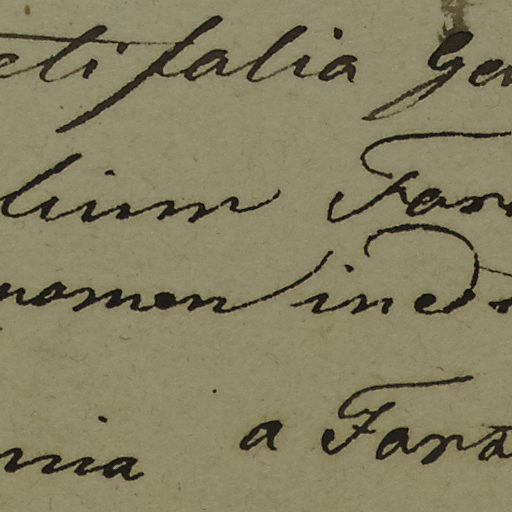 etifolia Ge
lium Far
nomen ined
nia a Fara